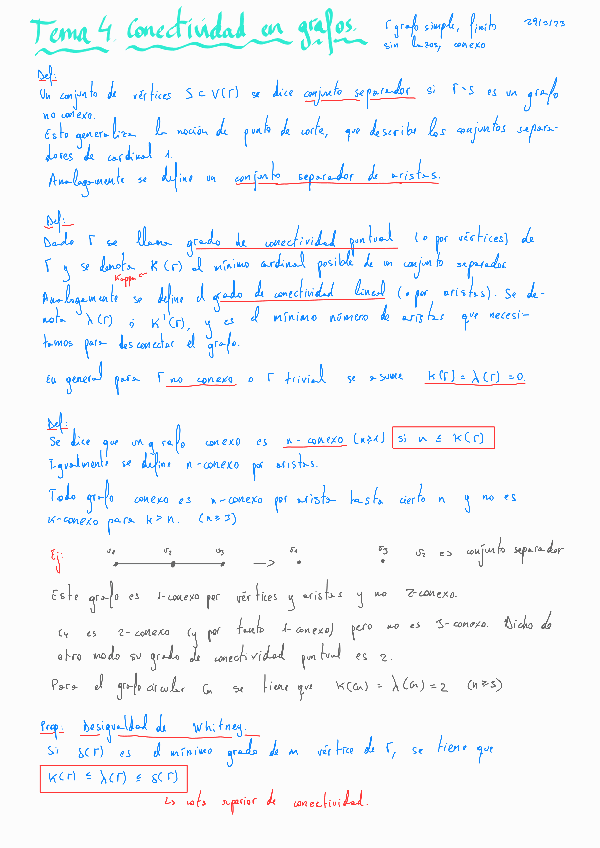 Tema 4. Conectividad en grafos.
Γ grafo simple, finito
sin lazos, conexo
Def:
Un conjunto de vértices S ⊂ V(Γ) se dice conjunto separador si Γ-S es un grafo
no conexo.
Esto generaliza la noción de punto de corte, que describe los conjuntos separa-
dores de cardinal 1.
Analogamente se define un conjunto separador de aristas.
Def:
Dado Γ se llama grado de conectividad puntual (o por vértices) de
Γ y se denota K(Γ) al mínimo cardinal posible de un conjunto separador
Kappa
Analogamente se define el grado de conectividad lineal (o por aristas). Se de-
nota λ(Γ) ó K'(Γ), y es el mínimo número de aristas que necesi-
tamos para desconectar el grafo.
En general para Γ no conexo o Γ trivial se asume K(Γ) = λ(Γ) = 0.
Def:
Se dice que un grafo conexo es n-conexo (n≥1) si n ≤ K(Γ)
Igualmente se define n-conexo por aristas.
Todo grafo conexo es n-conexo por arista hasta cierto n y no es
K-conexo para k > n. (n≥3)
Ej:
v1 v2 v3 → v1 v3 v2 es conjunto separador
Este grafo es 1-conexo por vértices y aristas y no 2-conexo.
C4 es 2-conexo (y por tanto 1-conexo) pero no es 3-conexo. Dicho de
otro modo su grado de conectividad puntual es 2.
Para el grafo circular Cn se tiene que K(Cn) = λ(Cn) = 2 (n≥3)
Prop: Desigualdad de Whitney.
Si δ(Γ) es el mínimo grado de un vértice de Γ, se tiene que
K(Γ) ≤ λ(Γ) ≤ δ(Γ)
↳ cota superior de conectividad.